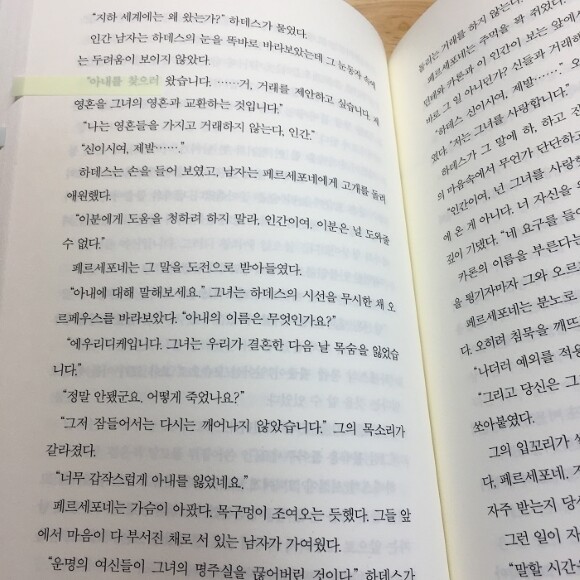 “지하 세계에는 왜 왔는가?” 하데스가 물었다.
인간 남자는 하데스의 눈을 똑바로 바라보았는데 그 눈동자 속에
는 두려움이 보이지 않았다.
“아내를 찾으러 왔습니다. ……거, 거래를 제안하고 싶습니다. 제
영혼을 그녀의 영혼과 교환하는 것입니다.”
“나는 영혼들을 가지고 거래하지 않는다, 인간.”
“신이시여, 제발…….”
하데스는 손을 들어 보였고, 남자는 페르세포네에게 고개를 돌려
애원했다.
“이분에게 도움을 청하려 하지 말라, 인간이여. 이분은 널 도와줄
수 없다.”
페르세포네는 그 말을 도전으로 받아들였다.
“아내에 대해 말해보세요.” 그녀는 하데스의 시선을 무시한 채 오
르페우스를 바라보았다. “아내의 이름은 무엇인가요?”
“에우리디케입니다. 그녀는 우리가 결혼한 다음 날 목숨을 잃었습
니다.”
“정말 안됐군요. 어떻게 죽었나요?”
“그저 잠들어서는 다시는 깨어나지 않았습니다.” 그의 목소리가
갈라졌다.
“너무 갑작스럽게 아내를 잃었네요.”
페르세포네는 가슴이 아팠다. 목구멍이 조여오는 듯했다. 그들 앞
에서 마음이 다 부서진 채로 서 있는 남자가 가여웠다.
“운명의 여신들이 그녀의 명주실을 끊어버린 것이다.” 하데스가
돌리는 거래를 하지 않는다
페르세포네는 주먹을 꽉 쥐었다.
민테와 카론과 이 인간이 보는 앞에서
바로 그 일 아니던가? 신들과 거래해
“하데스 신이시여, 제발…….”
었다. “저는 그녀를 사랑합니다.”
하데스가 그 말에 하, 하고
의 마음속에서 무언가 단단하
“인간이여, 넌 그녀를 사랑
에 온 게 아니다. 너 자신을
깊이 기댔다. “네 요구를 들
카론의 이름을 부른다는
을 튕기자마자 그와 오르
페르세포네는 분노로
다. 오히려 침묵을 깨뜨
“나더러 예외를 적용
“그리고 당신은 그
쏘아붙였다.
그의 입꼬리가
다, 페르세포네. 거
자주 받는지 당
그런 일이 자
“말할 시간